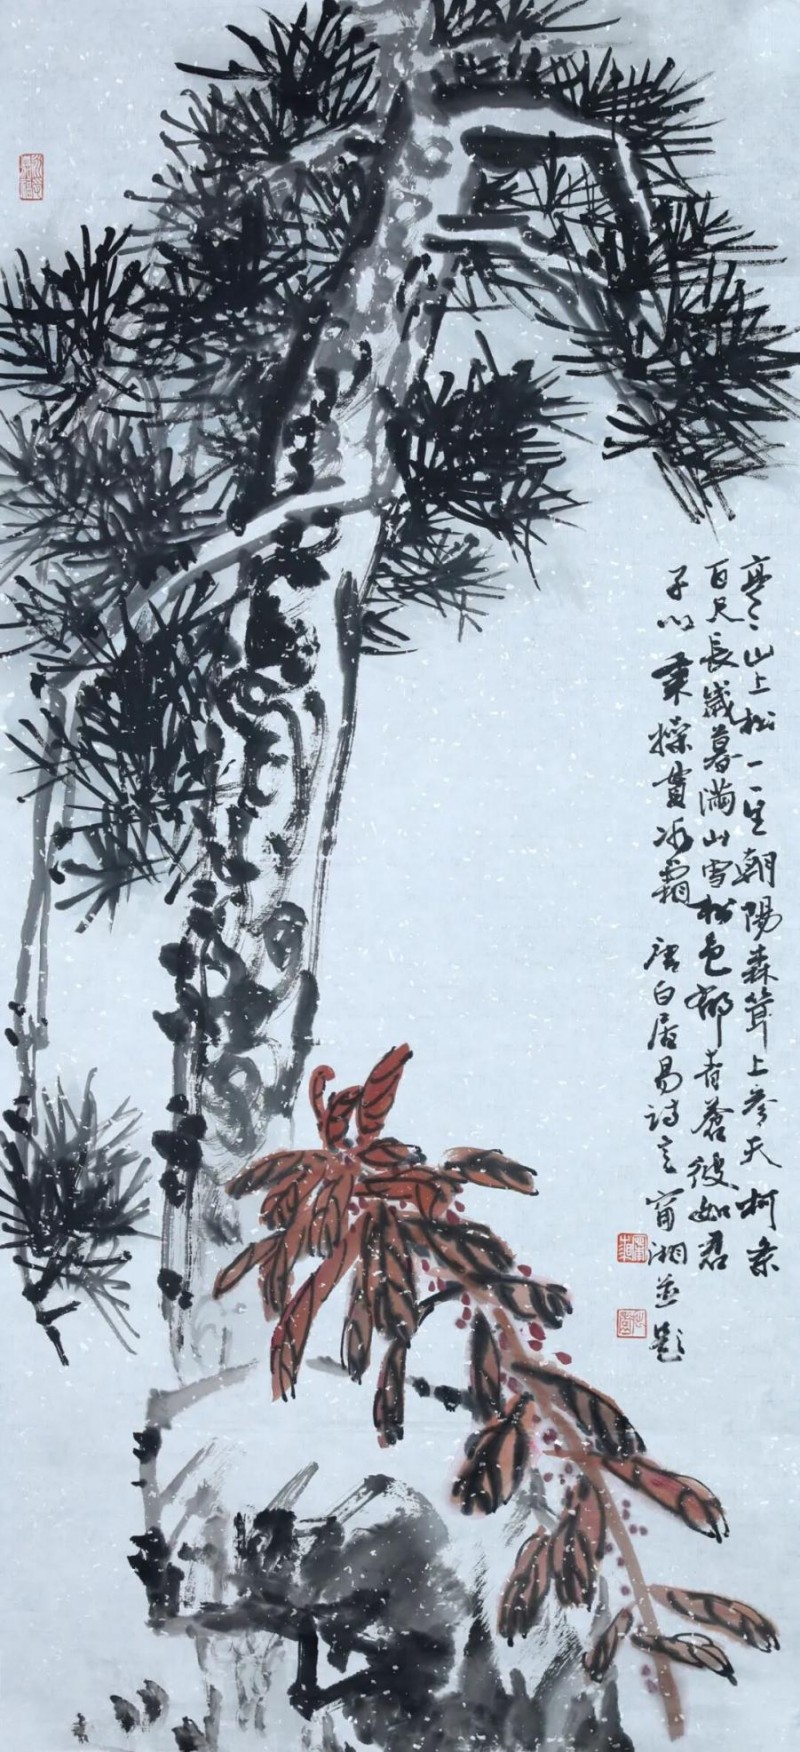 亭〻山上松一一生朝陽森聳上參天柯条
百尺長歲暮滿山雪松色郁青蒼彼如君
子心秉操貫冰霜 唐白居易詩意 甯湘並題